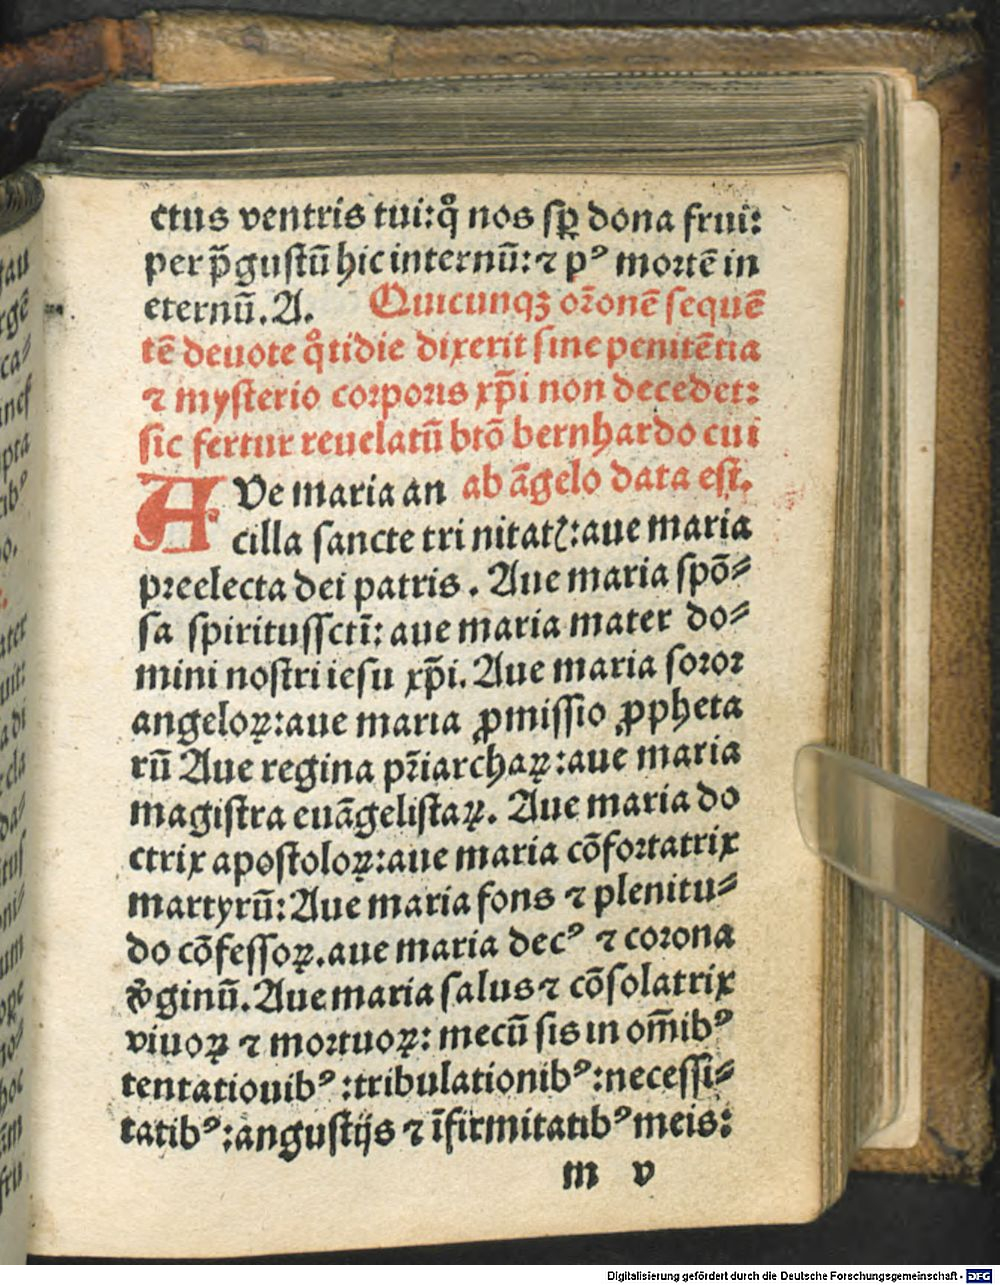 ctus ventris tui:qͦ nos sꝑ dona frui:
per p̄gustū hic internū:⁊ pꝰ moꝛtē in
eternū.A. Quicunqꝫ oꝛ̄onē sequē
tē deuote qͦtidie dixerit sine penitētia
⁊ mysterio coꝛpoꝛis xp̄i non decedet:
sic fertur reuelatū btō bernhardo cui
AVe maria an ab āgelo data est.
cilla sancte tri nitatꝭ:aue maria
pꝛeelecta dei patris. Aue maria spō⸗
sa spiritussctī: aue maria mater do⸗
mini nostri iesu xp̄i. Aue maria soꝛoꝛ
angeloꝝ:aue maria ꝓmissio ꝓpheta
rū Aue regina pꝛ̄iarchaꝝ:aue maria
magistra euāgelistaꝝ. Aue maria do
ctrix apostoloꝝ:aue maria cōfoꝛtatrix
martyrū:Aue maria fons ⁊ plenitu⸗
do cōfessoꝝ.aue maria decꝰ ⁊ coꝛona
v̄ginū.Aue maria salus ⁊ cōsolatrix
viuoꝝ ⁊ moꝛtuoꝝ: mecū sis in om̄ibꝰ
tentatiouibꝰ:tribulationibꝰ:necessi⸗
tatibꝰ:angustijs ⁊ īfirmitatibꝰ meis:
m v
Digitalisierung gefördert durch die Deutsche Forschungsgemeinschaft - DFG